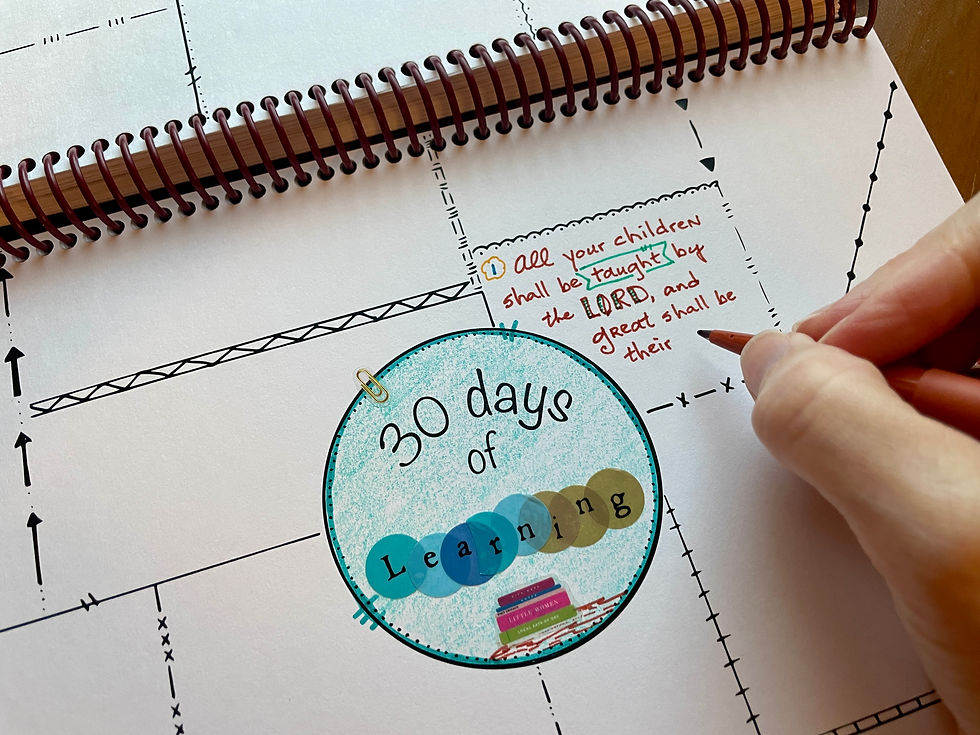 1 All your children
shall be taught by
the LORD, and
great shall be
their
30 days
of
Learning
LITTLE WOMEN